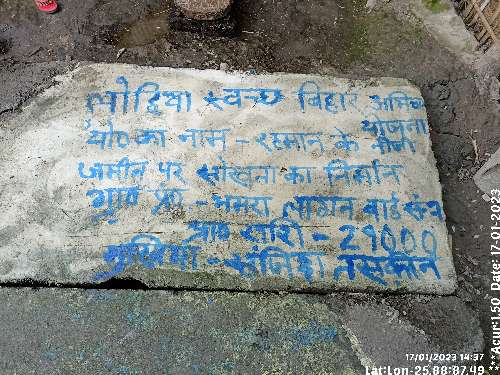 लोहिया स्वच्छ बिहार अभियान
योजना
यो० का नाम - रसमान के नीजी
जमीन पर सोखता का निर्माण
ग्रा० पं० - भमरा लाठान वार्ड सं०
प्रा० राशी - 29000
मुखिया - संजिदा तस्कीन
17/01/2023 14:37
Lat:Lon-25.88:87.49
***Acur:1.50 Date: 17-01-2023